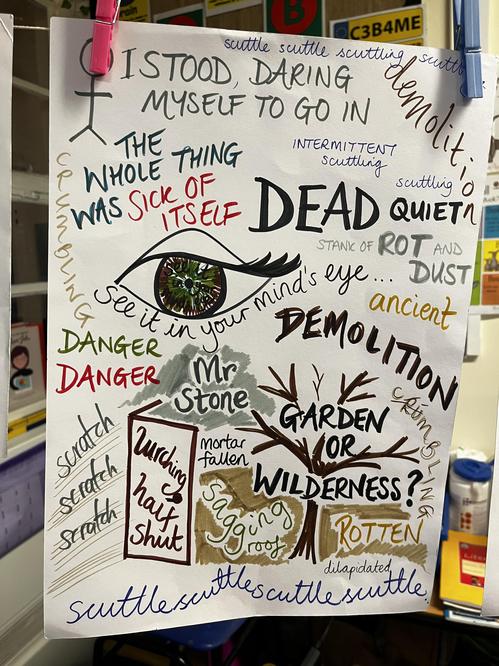 C3B4ME
B
scuttle scuttle scuttling scuttle
I STOOD, DARING
MYSELF TO GO IN
demolition
THE
WHOLE THING
WAS SICK OF
ITSELF
INTERMITTENT
scuttling
scuttling
crumbling
DEAD QUIET
STANK OF ROT AND
DUST
See it in your mind's eye...
ancient
DEMOLITION
DANGER
DANGER
Mr
Stone
GARDEN
OR
WILDERNESS?
CRUMBLING
scratch
scratch
scratch
lurching
half
shut
mortar
fallen
sagging
roof
ROTTEN
dilapidated
scuttle scuttle scuttle scuttle